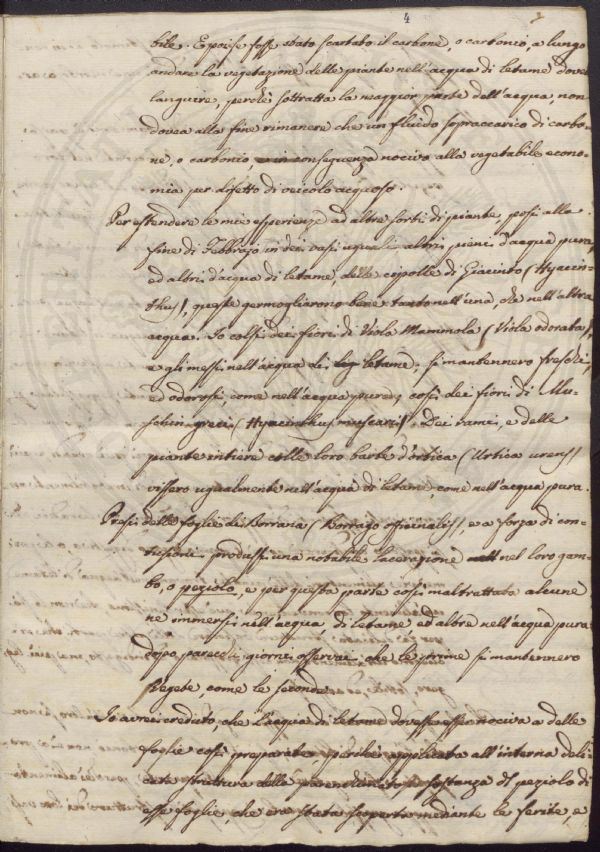 4
bile. E poi se fosse stato scartato il carbone, o carbonio, a lungo
andare la vegetazione delle piante nell'acqua di letame dovea
languire, perchè sottratta la maggior parte dell'acqua, non
dovea alla fine rimanere che un fluido sopraccarico di carbo-
ne, o carbonio, in conseguenza nocivo alla vegetabile econo-
mia per difetto di veicolo acquoso.
Per estendere le mie esperienze ad altre sorti di piante, posi alla
fine di Febbrajo in dei vasi uguali altri pieni d'acqua pura,
ed altri d'acqua di letame, delle cipolle di Giacinto (Hyacin-
thus), queste germogliarono bene tanto nell'una, che nell'altra
acqua. Io colsi dei fiori di Viola Mammola (Viola odorata),
e gli messi nell'acqua di letame; si mantennero freschi,
ed odorosi come nell'acqua pura, così dei fiori di Mu-
schin greci (Hyacinthus muscari). Dei rami, e delle
piante intiere colle loro barbe d'ortica (Urtica urens)
vissero ugualmente nell'acqua di letame, come nell'acqua pura.
Presi delle foglie di Borrana (Borrago officinalis), e a forza di con-
tusioni produssi una notabile lacerazione nel loro gam-
bo, o peziolo, e per questa parte così maltrattata alcune
ne immersi nell'acqua di letame ed altre nell'acqua pura
dopo parecchi giorni osservai che le prime si mantennero
vegete, come le seconde.
Io avrei creduto, che l'acqua di letame dovesse esser nociva a delle
foglie così preparate, perchè applicata all'interna deli-
cata struttura della sostanza del peziolo di
esse foglie, che era stata scoperta mediante le ferite, e